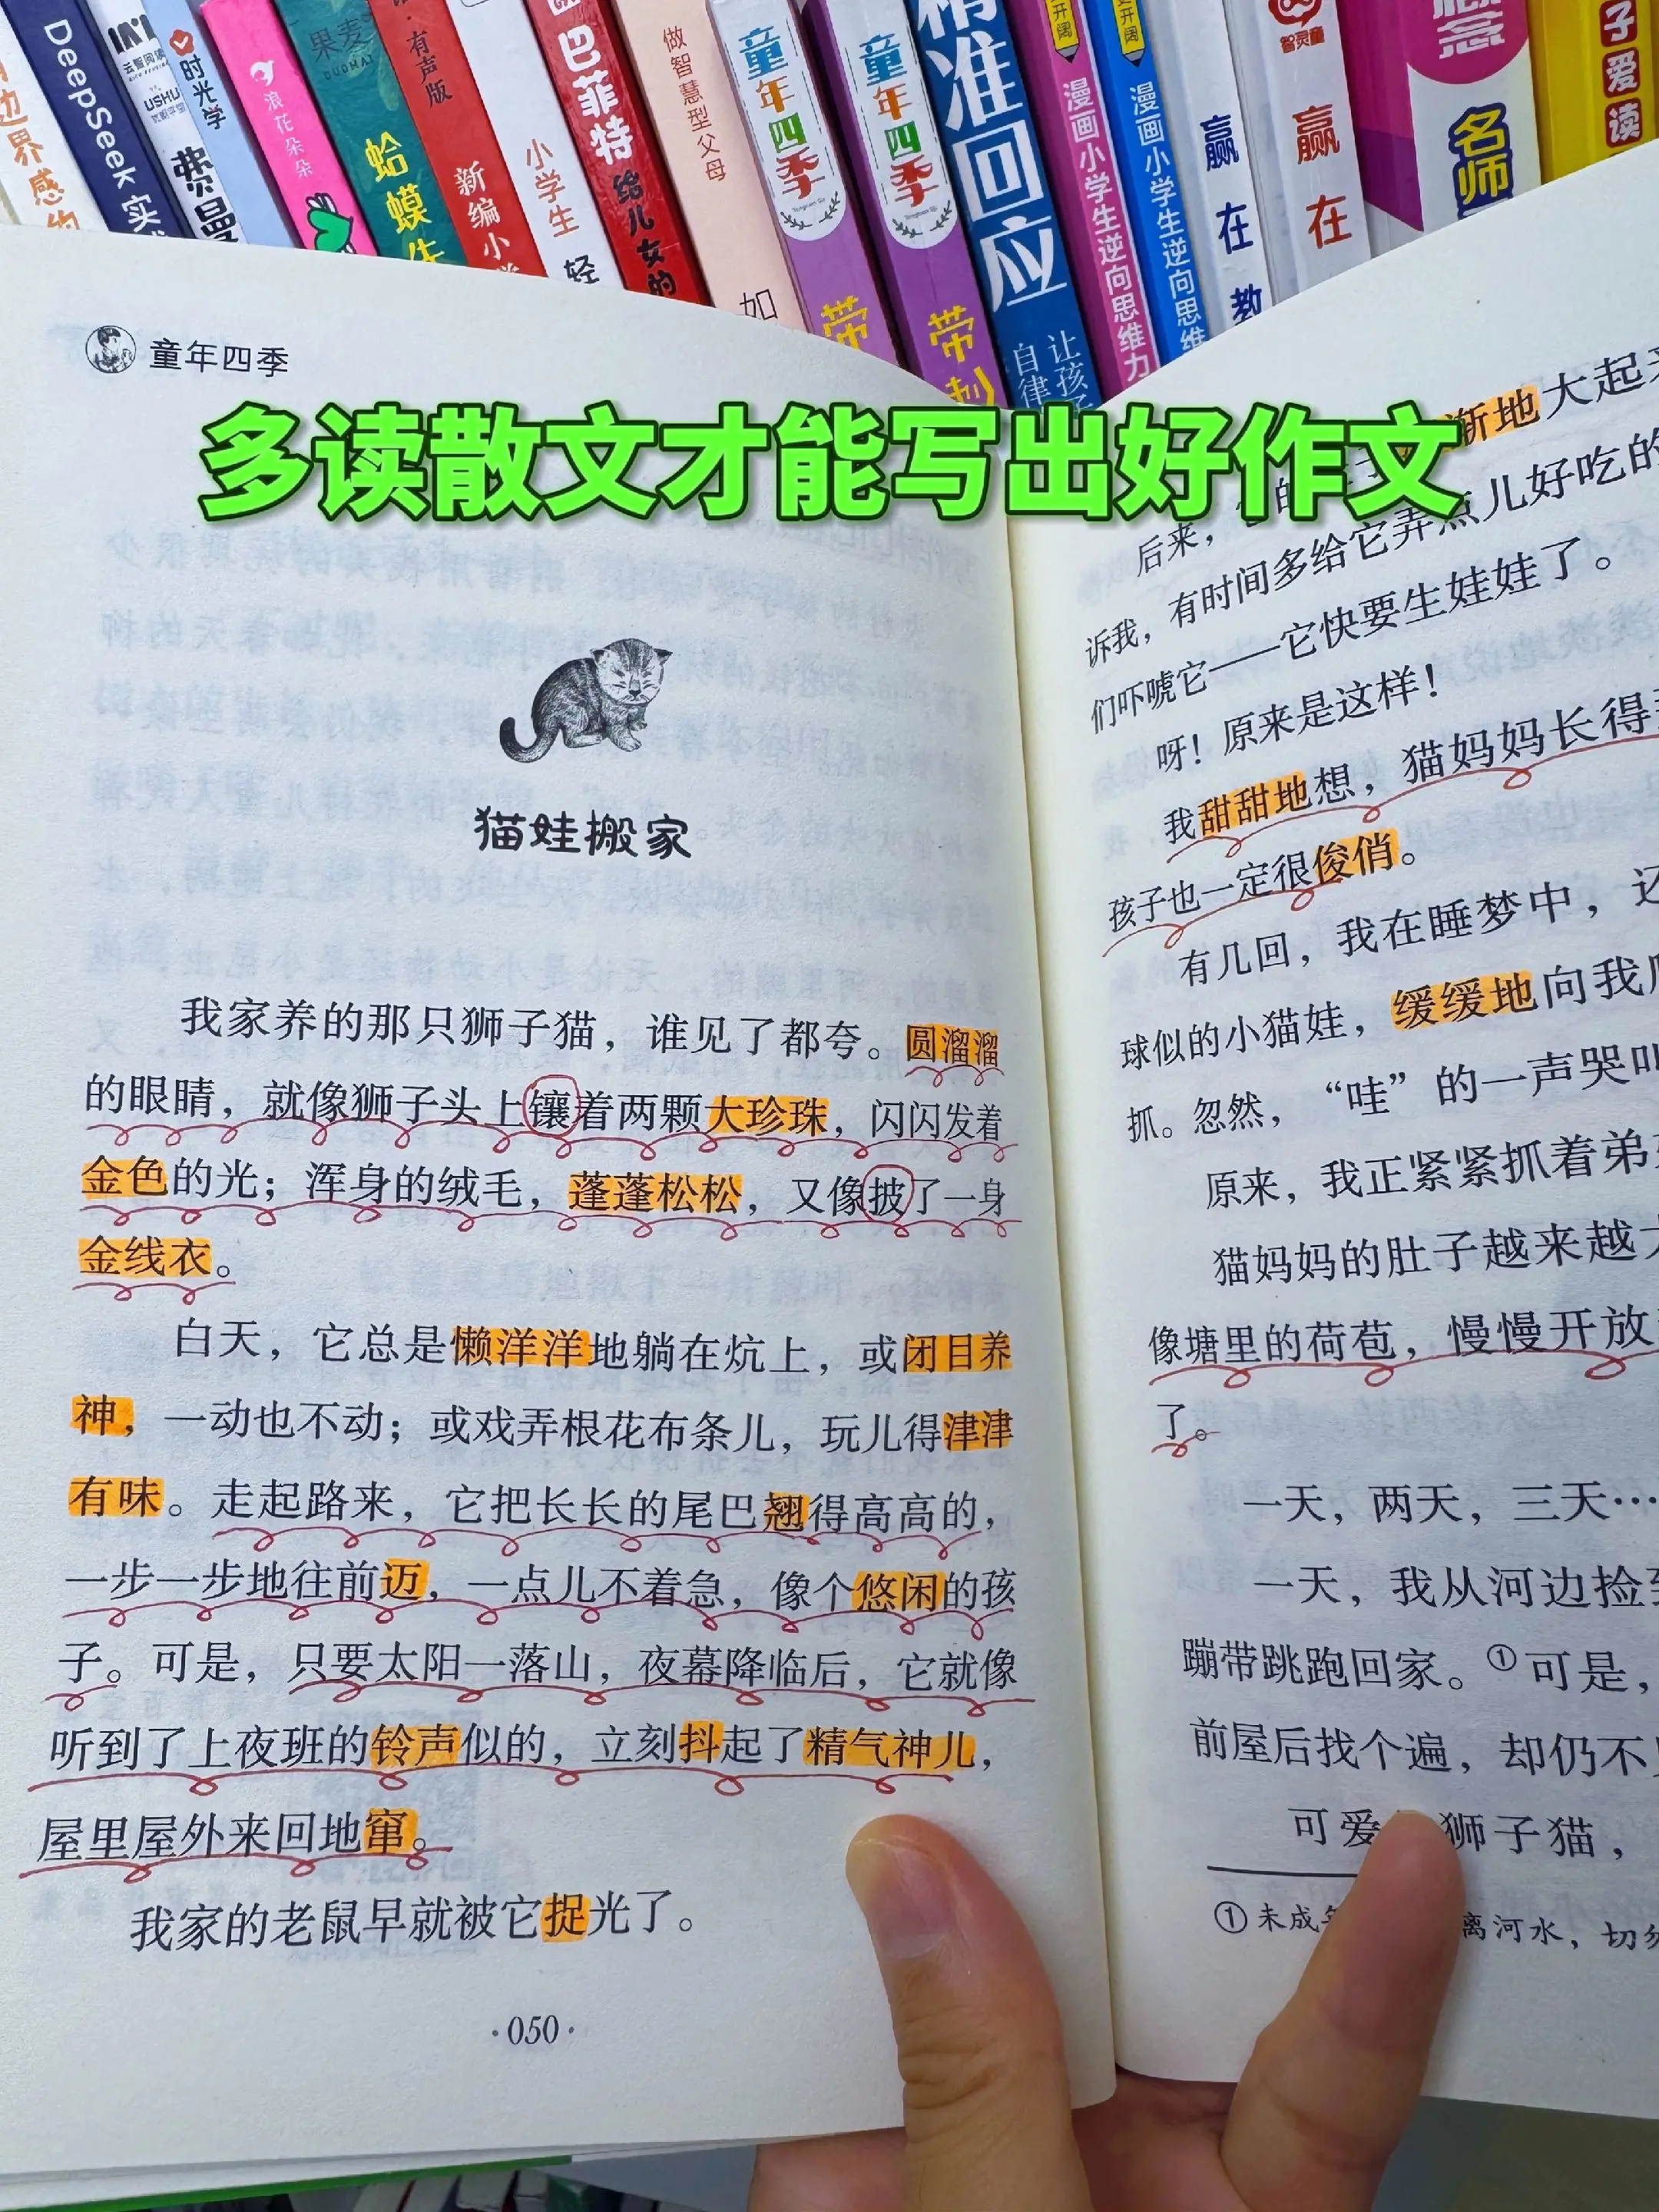 DeepSeek 实
云智阅读
USHU
时光学
费曼
浪花朵朵
果麦
GUOMAI
蛤蟆
有声版
新编小学
小学生
轻
巴菲特
给儿女的
做智慧型父母
如
童年四季
带刺
童年四季
带刺
精准回应
让孩子
自律
开阔
漫画小学生逆向思维力
开阔
漫画小学生逆向思维
赢在教
智灵童
赢在
念
名师
子爱读
童年四季
多读散文才能写出好作文
猫娃搬家
我家养的那只狮子猫，谁见了都夸。圆溜溜
的眼睛，就像狮子头上镶着两颗大珍珠，闪闪发着
金色的光；浑身的绒毛，蓬蓬松松，又像披了一身
金线衣。
白天，它总是懒洋洋地躺在炕上，或闭目养
神，一动也不动；或戏弄根花布条儿，玩儿得津津
有味。走起路来，它把长长的尾巴翘得高高的，
一步一步地往前迈，一点儿不着急，像个悠闲的孩
子。可是，只要太阳一落山，夜幕降临后，它就像
听到了上夜班的铃声似的，立刻抖起了精气神儿，
屋里屋外来回地窜。
我家的老鼠早就被它捉光了。
·050·
后来，渐地大起来
诉我，有时间多给它弄点儿好吃的
们吓唬它——它快要生娃娃了。
呀！原来是这样！
我甜甜地想，猫妈妈长得
孩子也一定很俊俏。
有几回，我在睡梦中，还
球似的小猫娃，缓缓地向我
抓。忽然，“哇”的一声哭叫
原来，我正紧紧抓着弟
猫妈妈的肚子越来越大
像塘里的荷苞，慢慢开放
了。
一天，两天，三天…
一天，我从河边捡到
蹦带跳跑回家。①可是，
前屋后找个遍，却仍不
可爱 狮子猫，
①未成 离河水，切勿